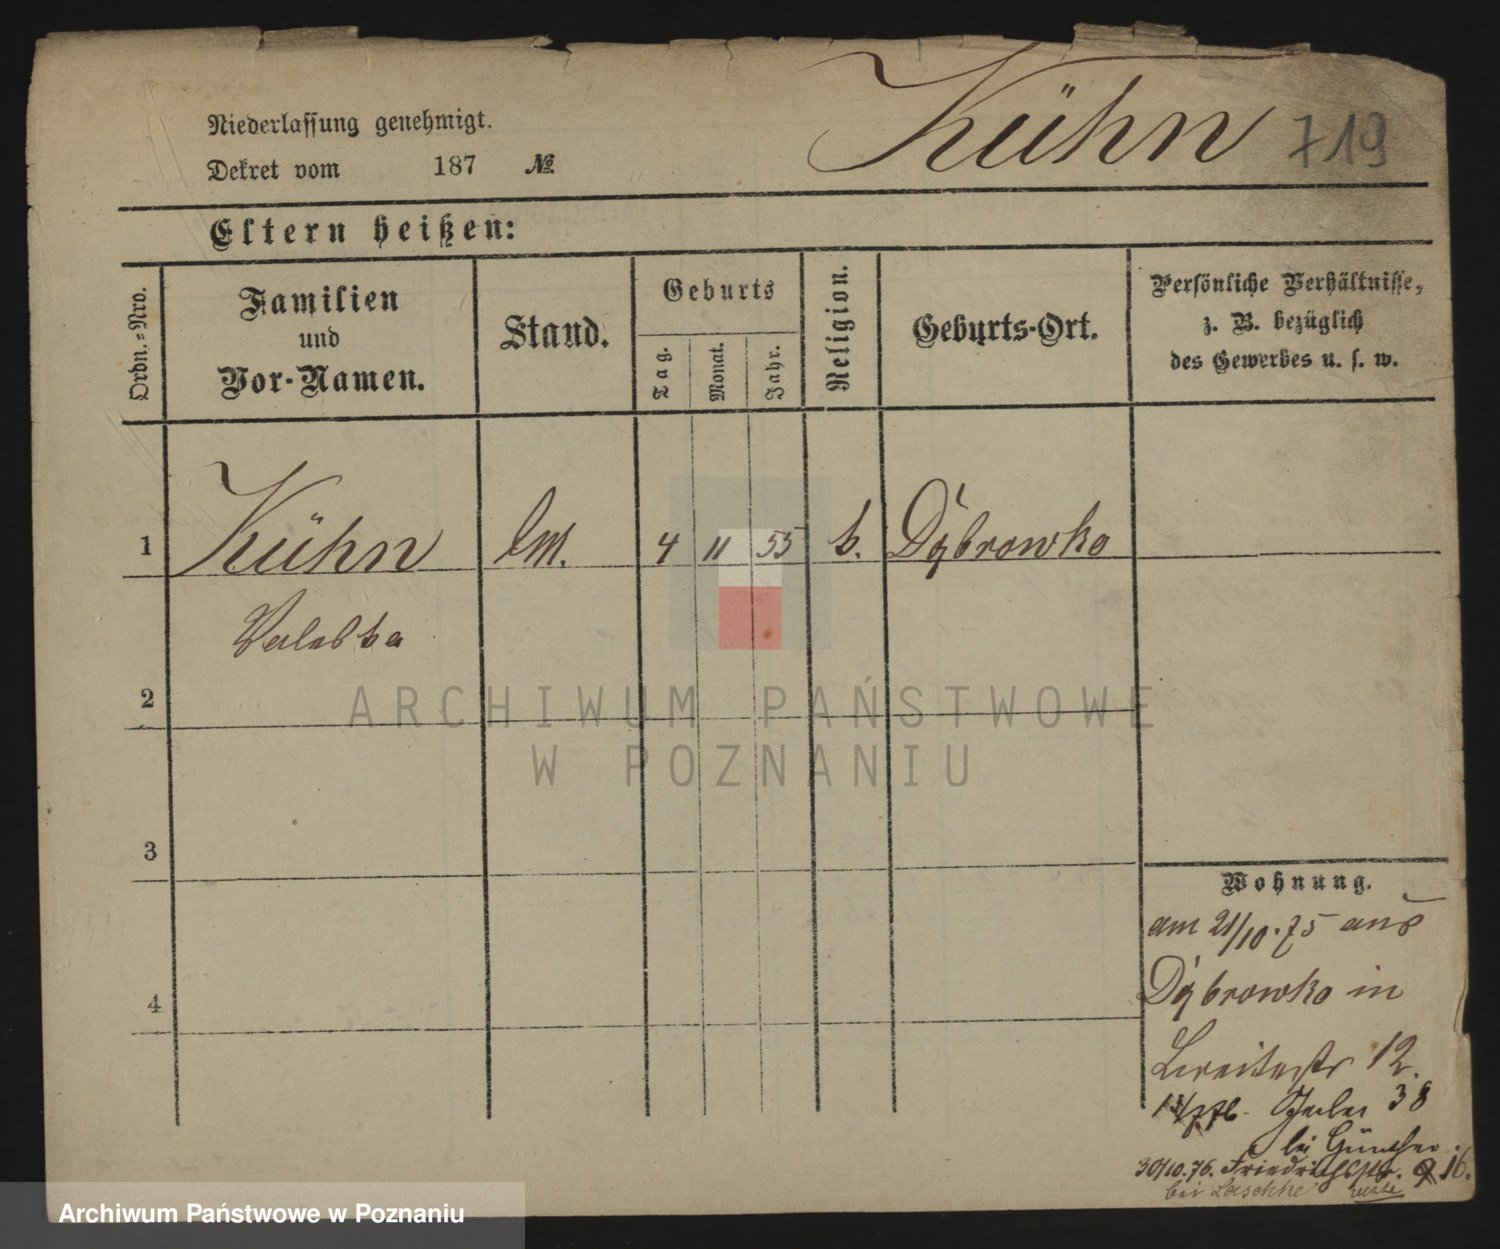 Niederlassung genehmigt.
Dekret vom 187 №
Kühn 719
Eltern heißen:
Ordn.-Nro.
Familien und Vor-Namen.
Stand.
Geburts
Tag.
Monat.
Jahr.
Religion.
Geburts-Ort.
Persönliche Verhältnisse, z. B. bezüglich des Gewerbes u. s. w.
1 Kühn 4 11 55 k. Dąbrowka
Valeska
2
3
4
Wohnung.
am 21/10.75 aus
Dąbrowka in
Breitestr 12.
38
bei Günther
30/10.76. Friedrichstr. 16.
bei Laschke
ARCHIWUM PAŃSTWOWE
W POZNANIU
Archiwum Państwowe w Poznaniu